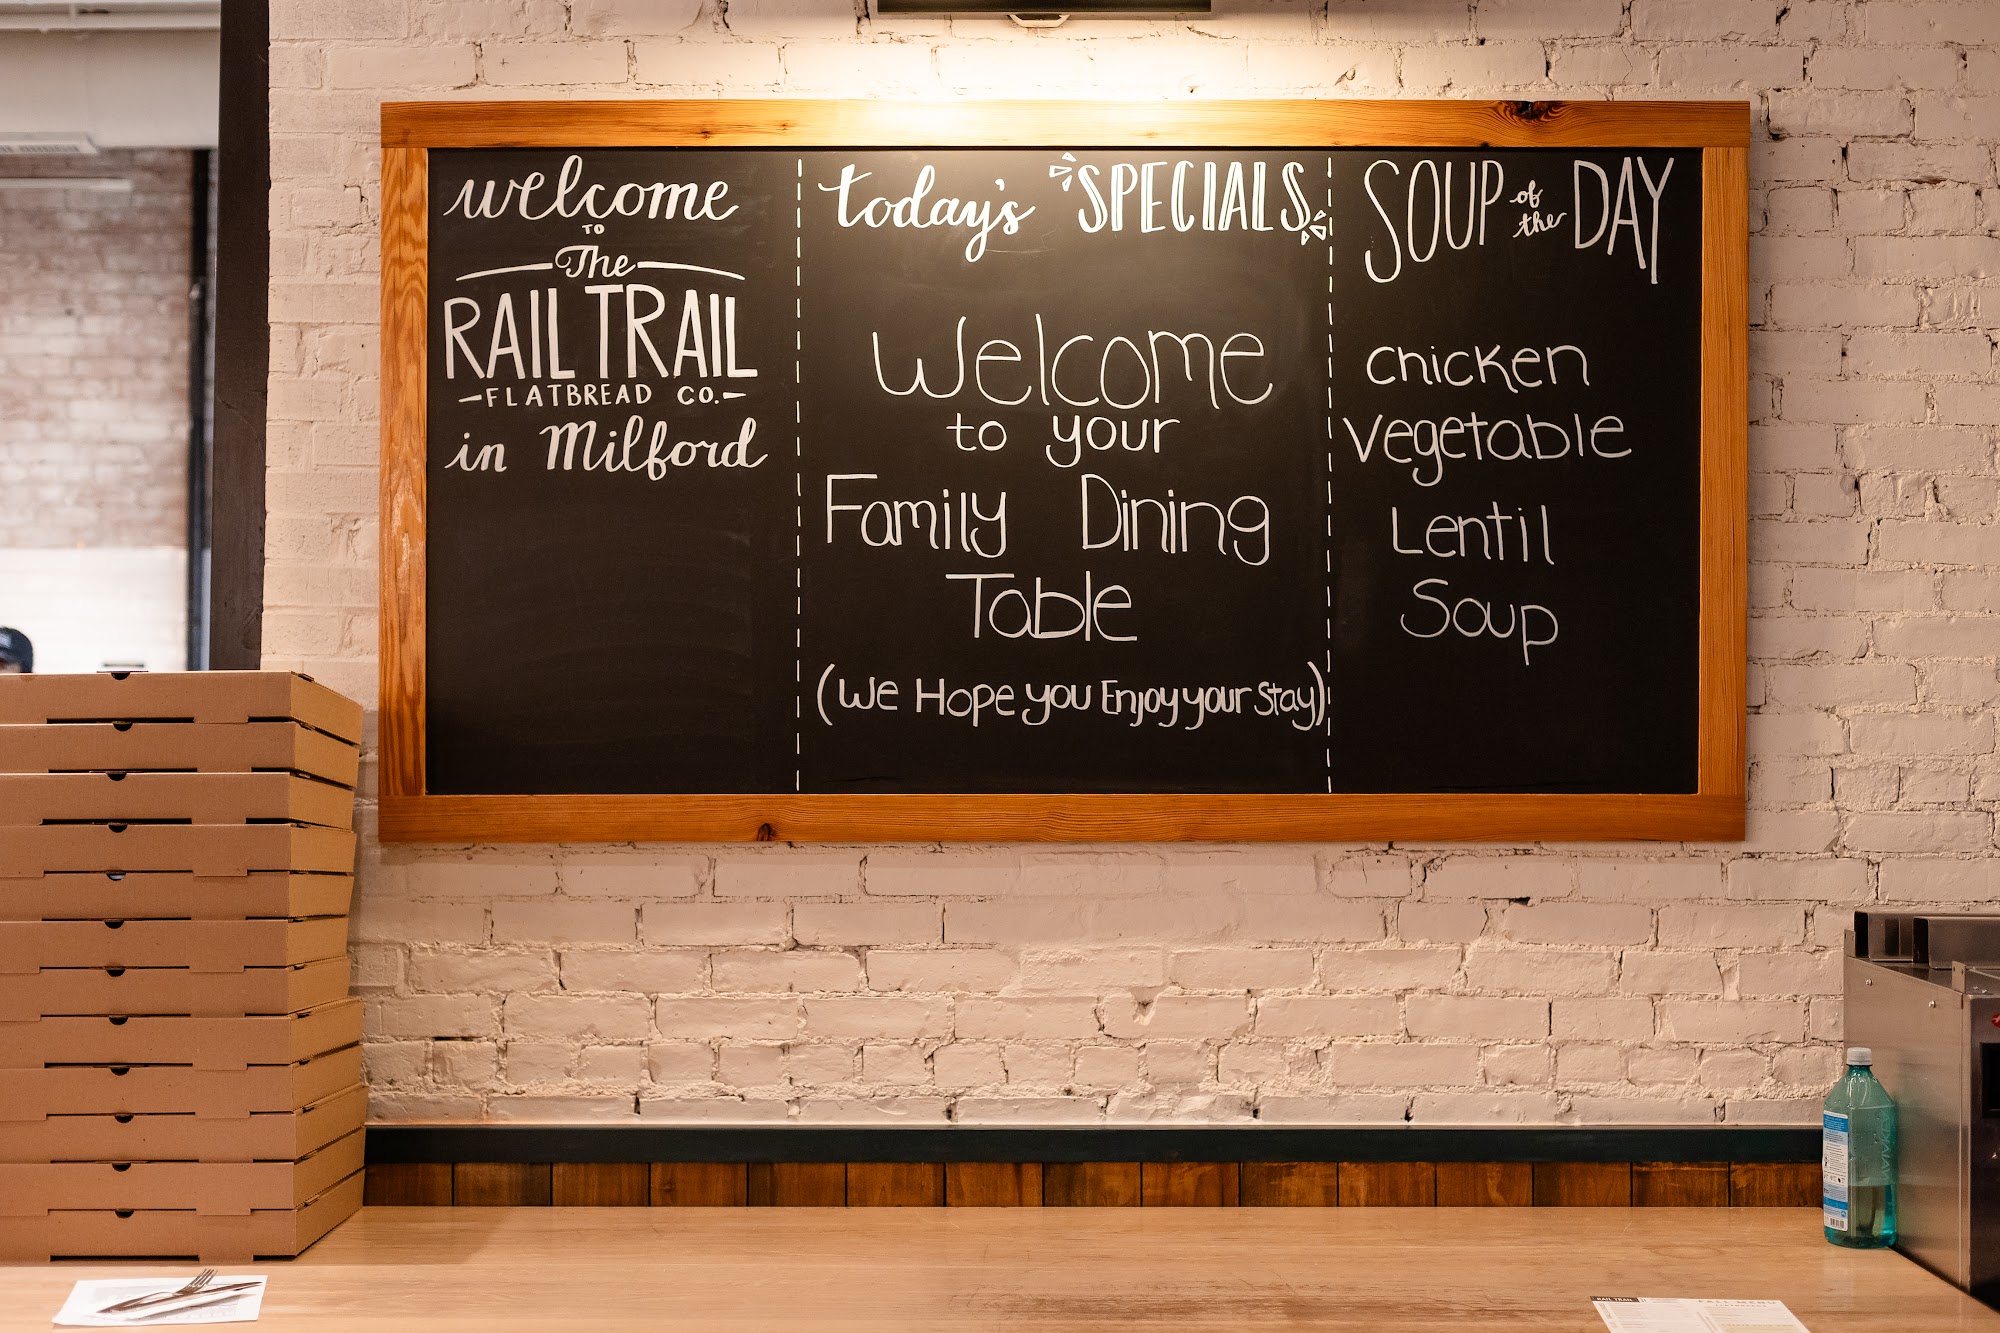 welcome
TO
The
RAIL TRAIL
-FLATBREAD CO.-
in Milford
today's SPECIALS
Welcome
to your
Family Dining
Table
(We Hope you Enjoy your Stay)
SOUP of the DAY
Chicken
Vegetable
Lentil
Soup
RAIL TRAIL
FALL MENU